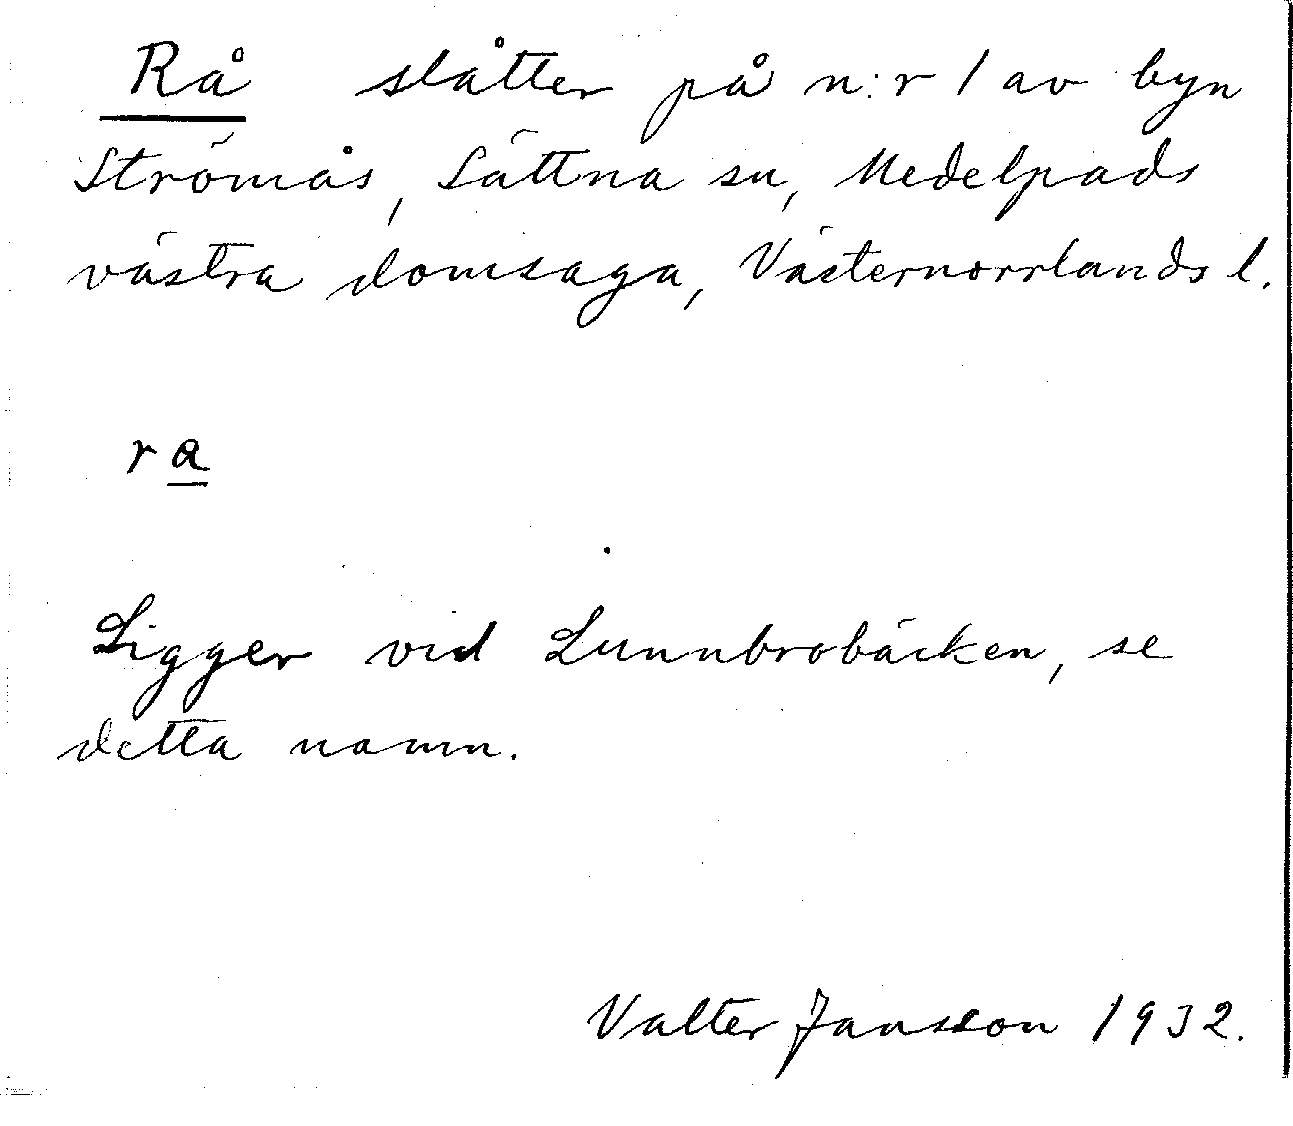 Rå slåtter på n:r 1 av byn
Strömås, Sättna sn, Medelpads
västra domsaga, Västernorrlands l.
ra
Ligger vid Lunnbrobäcken, se
detta namn.
Valter Jansson 1932.